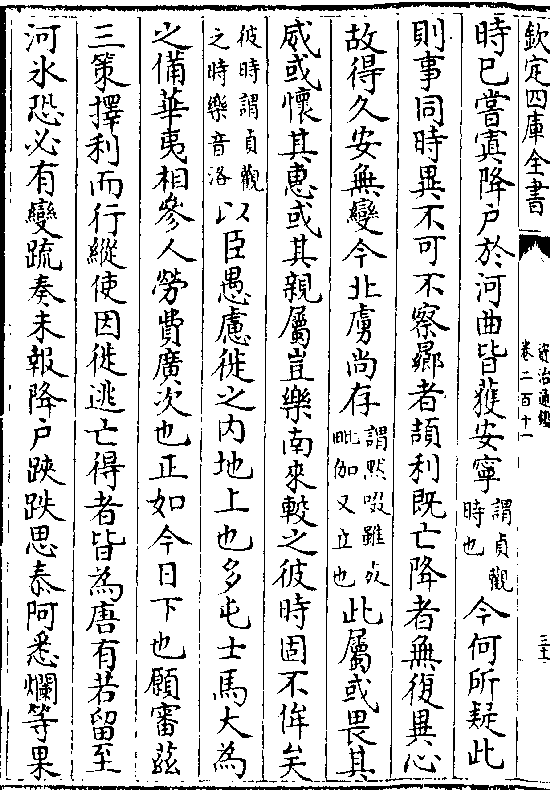 欽定四庫全書
資治通鑑
卷二百十一
三十一
時已嘗寘降户於河曲皆獲安寧謂貞觀時也今何所疑此
則事同時異不可不察曏者頡利既亡降者無復異心
故得久安無變今北虜尚存謂黙啜雖死毗伽又立也此屬或畏其
威或懷其惠或其親屬豈樂南來較之彼時固不侔矣
彼時謂貞觀之時樂音洛以臣愚慮徙之内地上也多屯士馬大為
之備華夷相參人勞費廣次也正如今日下也願審兹
三策擇利而行縱使因徙逃亡得者皆為唐有若留至
河氷恐必有變疏奏未報降户𨁂跌思泰阿悉爛等果